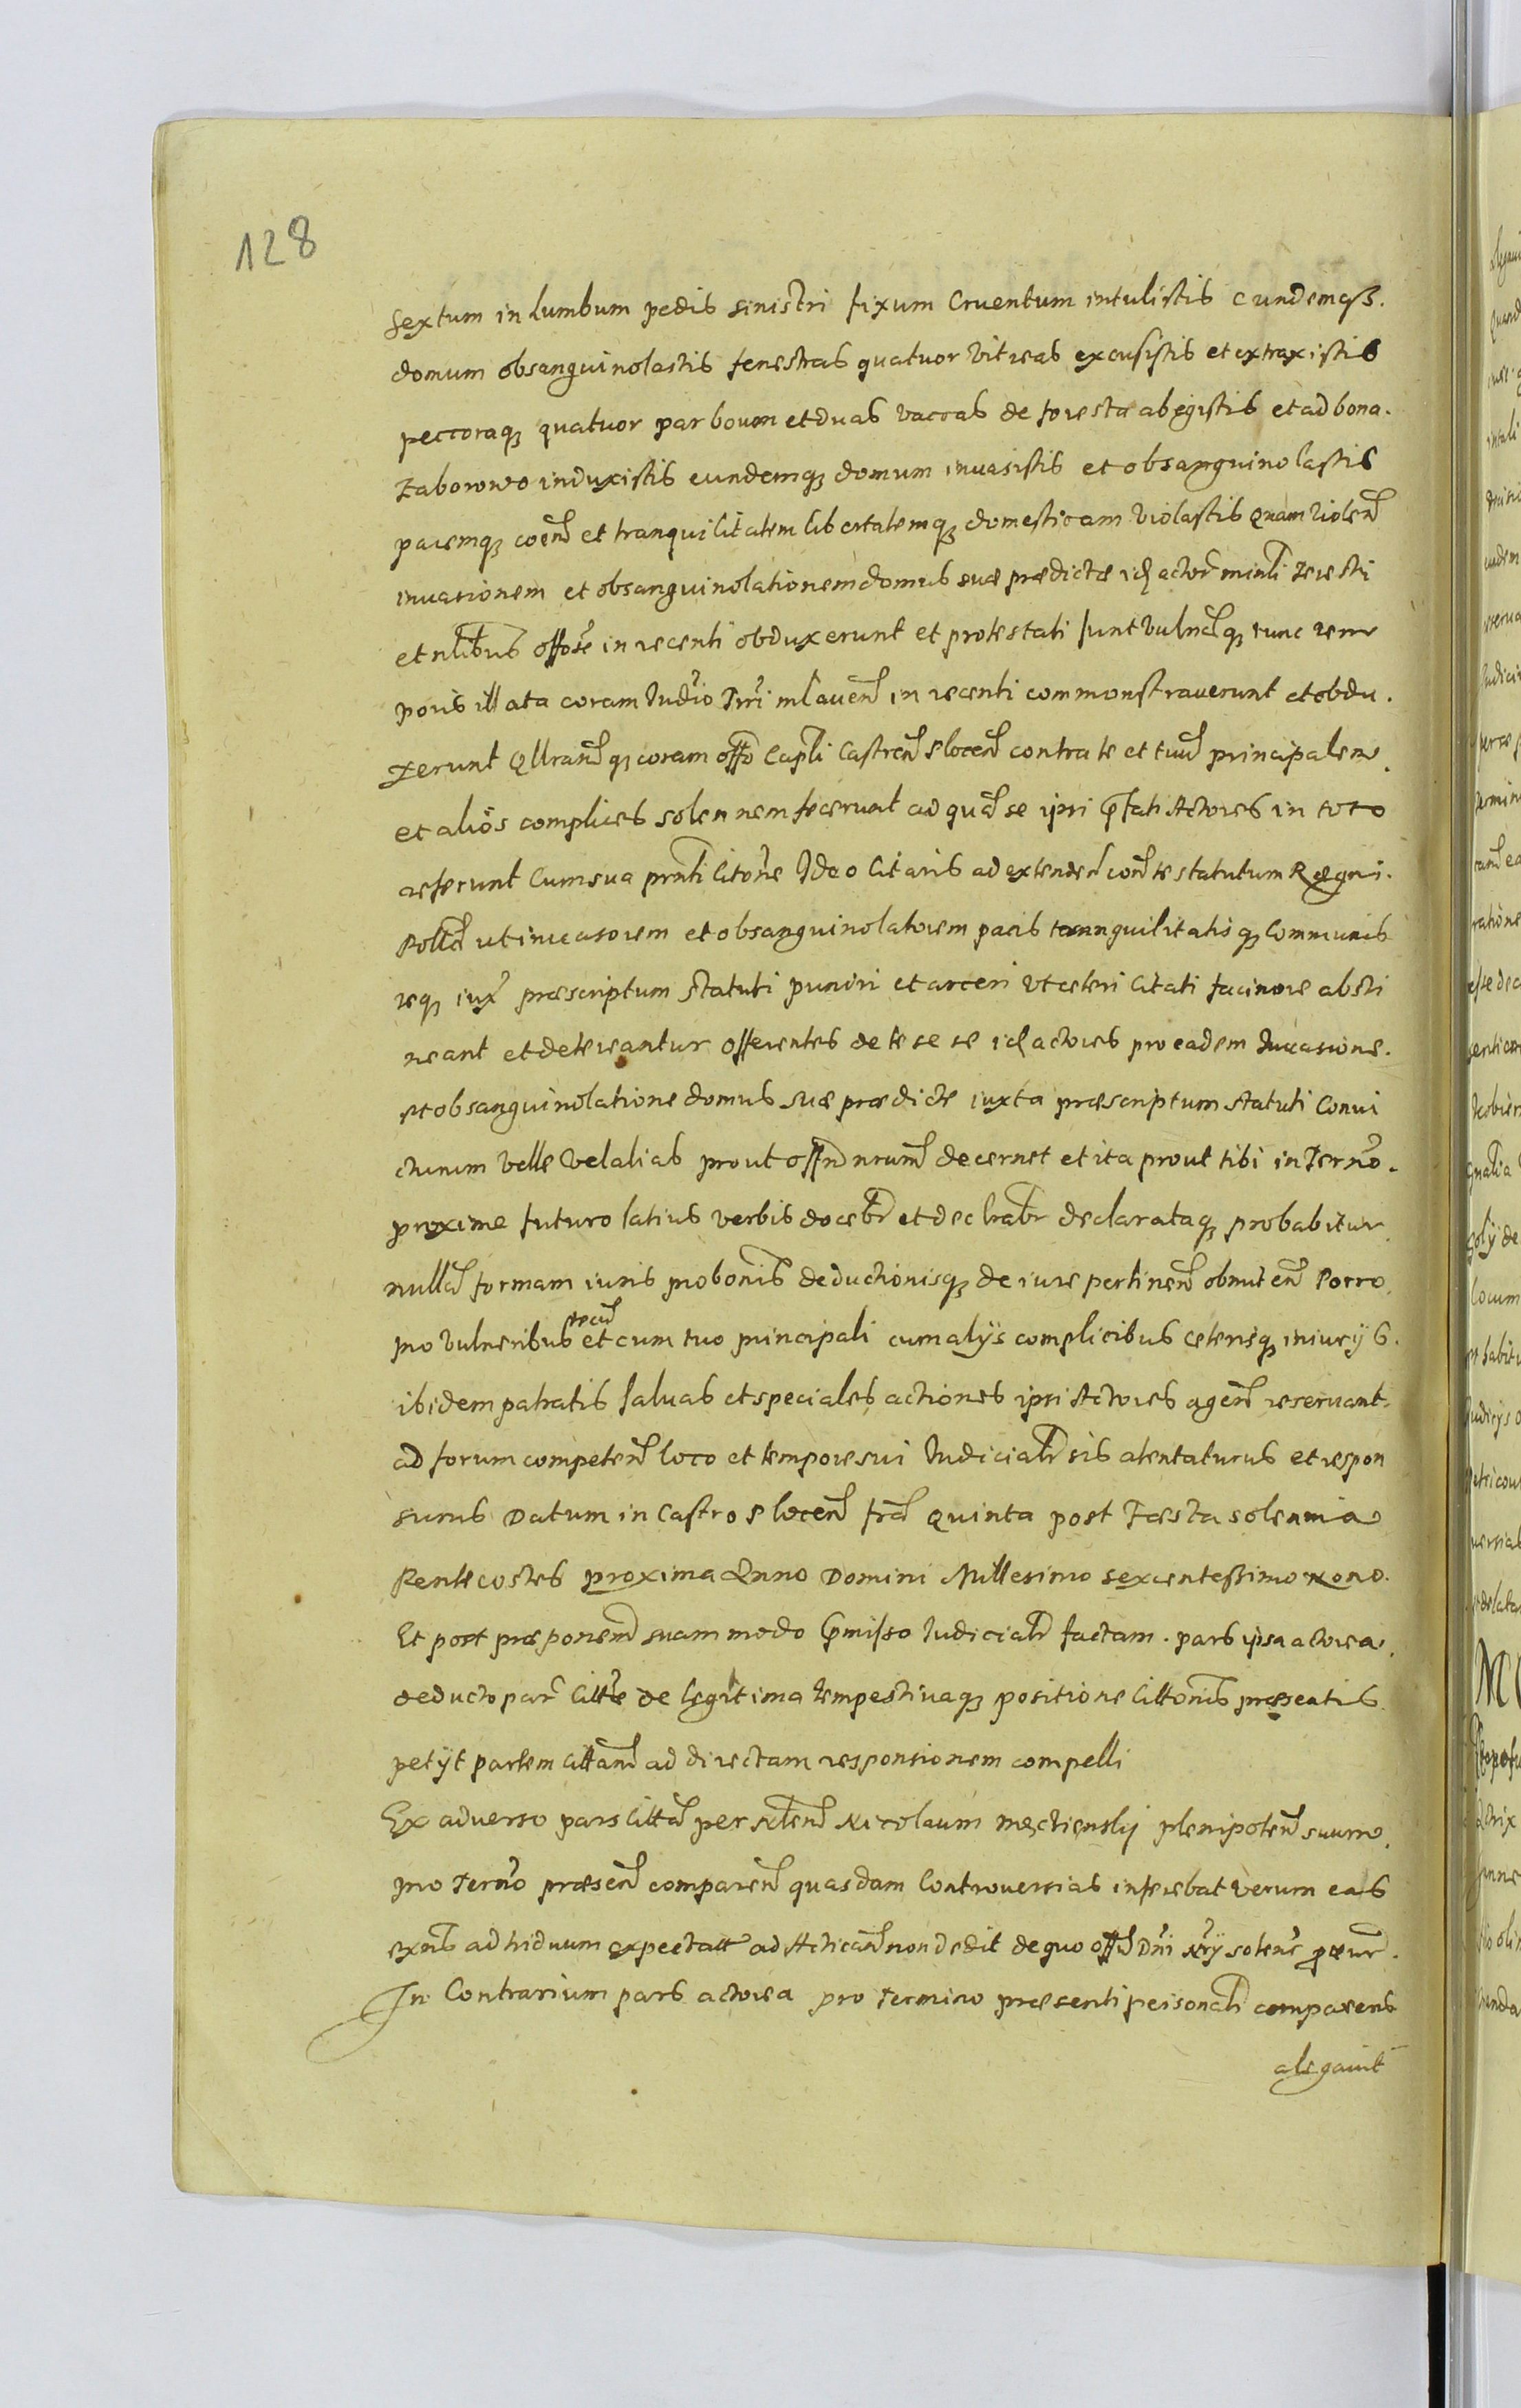 128
sextum in Lumbum pedis sinistri fixum Cruentum intulistis eundemqз.
domum obsanguinolastis fenestras quatuor vitreas excusistis et extraxistis
peccoraqз quatuor par boum et duas vaccas de foresta abegistis et ad bona.
Zaborowo induxistis eundemqз domum invasistis et obsanguinolastis
pacemqз coem et tranquilitatem libertatemqз domesticam violastis quam violen
invasionem et obsanguinolationem domus suæ prædictæ actor minli Terestri
et nlibus offose in recenti obduxerunt et protestati sunt vulneraqз tunc tem
poris illata coram Iudio in recenti commonstraverunt et obdu.
xerunt Qllranqз coram offo Capli Castren Plocen contra te et tuum principalem
et alios complices solennem fecerunt ad quam se ipsi pfati Actores in toto
referunt Cum sua pnti Citone Ideo Citaris ad extenden con te statutum Regni.
Pollæ ut invasorem et obsanguinolatorem pacis tranquilitatisqз Communis
teqз iux præscriptum statuti puniri et arceri Ut ceteri Citati facinore absti
neant et detereantur offerentes de te se se actores pro eadem Invasione.
et obsanguinolatione domus suæ prædicte iuxta præscriptum statuti Convi
cturum velle vel alias prout offm nrum decernet et ita prout tibi in Terno.
proxime futuro latius verbis docebr et declrabr declarataqз probabitur
nulla formam iuris probonis deductionisqз de iure pertinen obmiten Porro
pro vulneribus tecum et cum tuo principali cum alÿs complicibus ceterisqз iniurÿs.
ibidem patratis salvas et speciales actiones ipsi Actores agen reservant
ad forum competen loco et tempore sui Iudicialr sis atentaturus et respon
surus Datum in Castro Plocen fra Quinta post Festa solennia
Pentecostes proxima Anno Domini Millesimo sexcentessimo nono.
Et post præponem suam modo pmisso Iudicialr factam. pars ipsa actorea
deducto par Citte de legitima tempestivaqз positione Cittonis præsentis
petÿt partem Cittam ad directam responsionem compelli
Ex adverso pars Citta per Nicolaum plenipoten suum
pro Terno præsen comparen quasdam Controversias inferebat verum eas
ad triduum expectatt ad Actican non dedit de quo offm Dni
In Contrarium pars actorea pro termino præsenti personalr comparens
alegavit